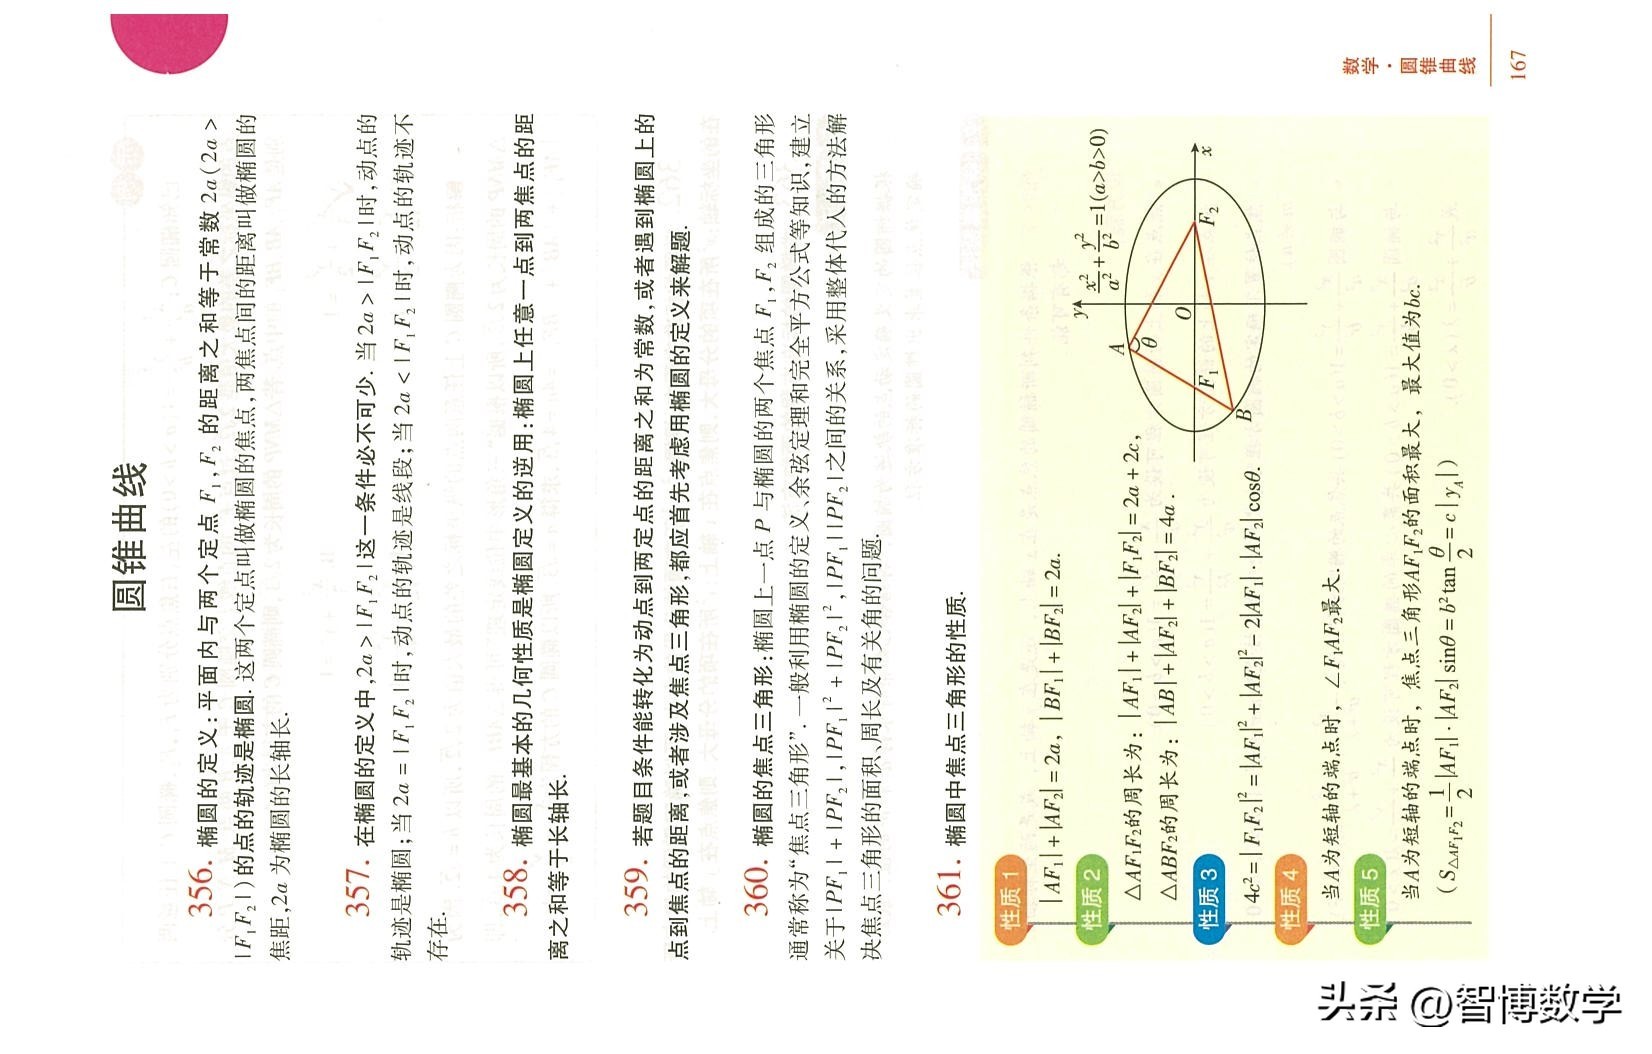 圆锥曲线
356. 椭圆的定义:平面内与两个定点 F₁,F₂ 的距离之和等于常数 2a(2a>
|F₁F₂|)的点的轨迹是椭圆. 这两个定点叫做椭圆的焦点,两焦点间的距离叫做椭圆的
焦距,2a 为椭圆的长轴长.
357. 在椭圆的定义中,2a>|F₁F₂|这一条件必不可少. 当 2a>|F₁F₂|时,动点的
轨迹是椭圆;当 2a=|F₁F₂|时,动点的轨迹是线段;当 2a<|F₁F₂|时,动点的轨迹不
存在.
358. 椭圆最基本的几何性质是椭圆定义的逆用:椭圆上任意一点到两焦点的距
离之和等于长轴长.
359. 若题目条件能转化为动点到两定点的距离之和为常数,或者遇到椭圆上的
点到焦点的距离,或者涉及焦点三角形,都应首先考虑用椭圆的定义来解题.
360. 椭圆的焦点三角形:椭圆上一点 P 与椭圆的两个焦点 F₁,F₂ 组成的三角形
通常称为“焦点三角形”. 一般利用椭圆的定义、余弦定理和完全平方公式等知识,建立
关于|PF₁|+|PF₂|,|PF₁|²+|PF₂|²,|PF₁||PF₂|之间的关系,采用整体代入的方法解
决焦点三角形的面积、周长及有关角的问题.
361. 椭圆中焦点三角形的性质.
性质 1
|AF₁|+|AF₂|=2a,|BF₁|+|BF₂|=2a.
性质 2
△AF₁F₂的周长为:|AF₁|+|AF₂|+|F₁F₂|=2a+2c,
△ABF₂的周长为:|AB|+|AF₂|+|BF₂|=4a.
性质 3
4c²=|F₁F₂|²=|AF₁|²+|AF₂|²-2|AF₁|·|AF₂|cosθ.
性质 4
当A为短轴的端点时,∠F₁AF₂最大.
性质 5
当A为短轴的端点时,焦点三角形AF₁F₂的面积最大,最大值为bc.
(S△AF₁F₂=1/2|AF₁|·|AF₂|sinθ=b²tanθ/2=c|y_A|)
y
x²/a²+y²/b²=1(a>b>0)
A
θ
F₁
O
F₂
x
B
数学·圆锥曲线
167
头条 @智博数学